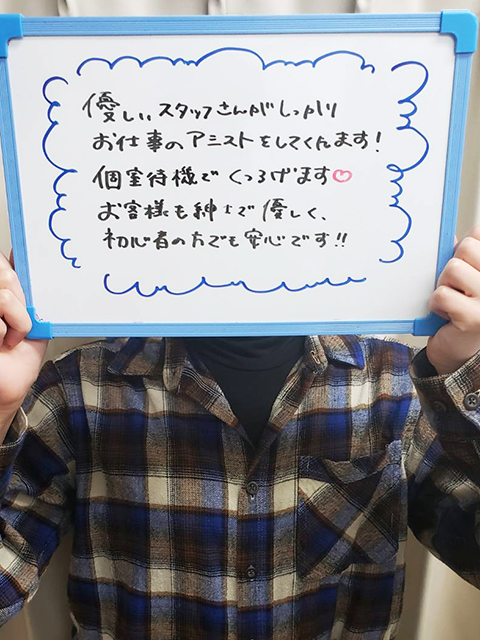 優しいスタッフさんがしっかり
お仕事のアシストをしてくれます！
個室待機でくつろげます♡
お客様も紳士で優しく、
初心者の方でも安心です!!